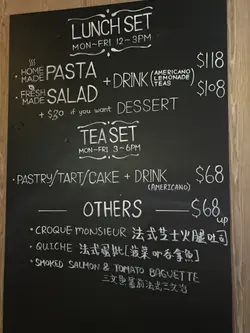 LUNCH SET
MON-FRI 12-3PM
HOME MADE PASTA $118
+ DRINK (AMERICANO LEMONADE TEAS)
FRESH MADE SALAD $108
+ $30 if you want DESSERT
TEA SET
MON-FRI 3-6PM
· PASTRY/TART/CAKE + DRINK $68
(AMERICANO)
OTHERS $68 up
· CROQUE MONSIEUR 法式芝士火腿吐司
· QUICHE 法式蛋批 [菠菜 or 吞拿魚]
· SMOKED SALMON & TOMATO BAGUETTE
三文魚蕃茄法式三文治